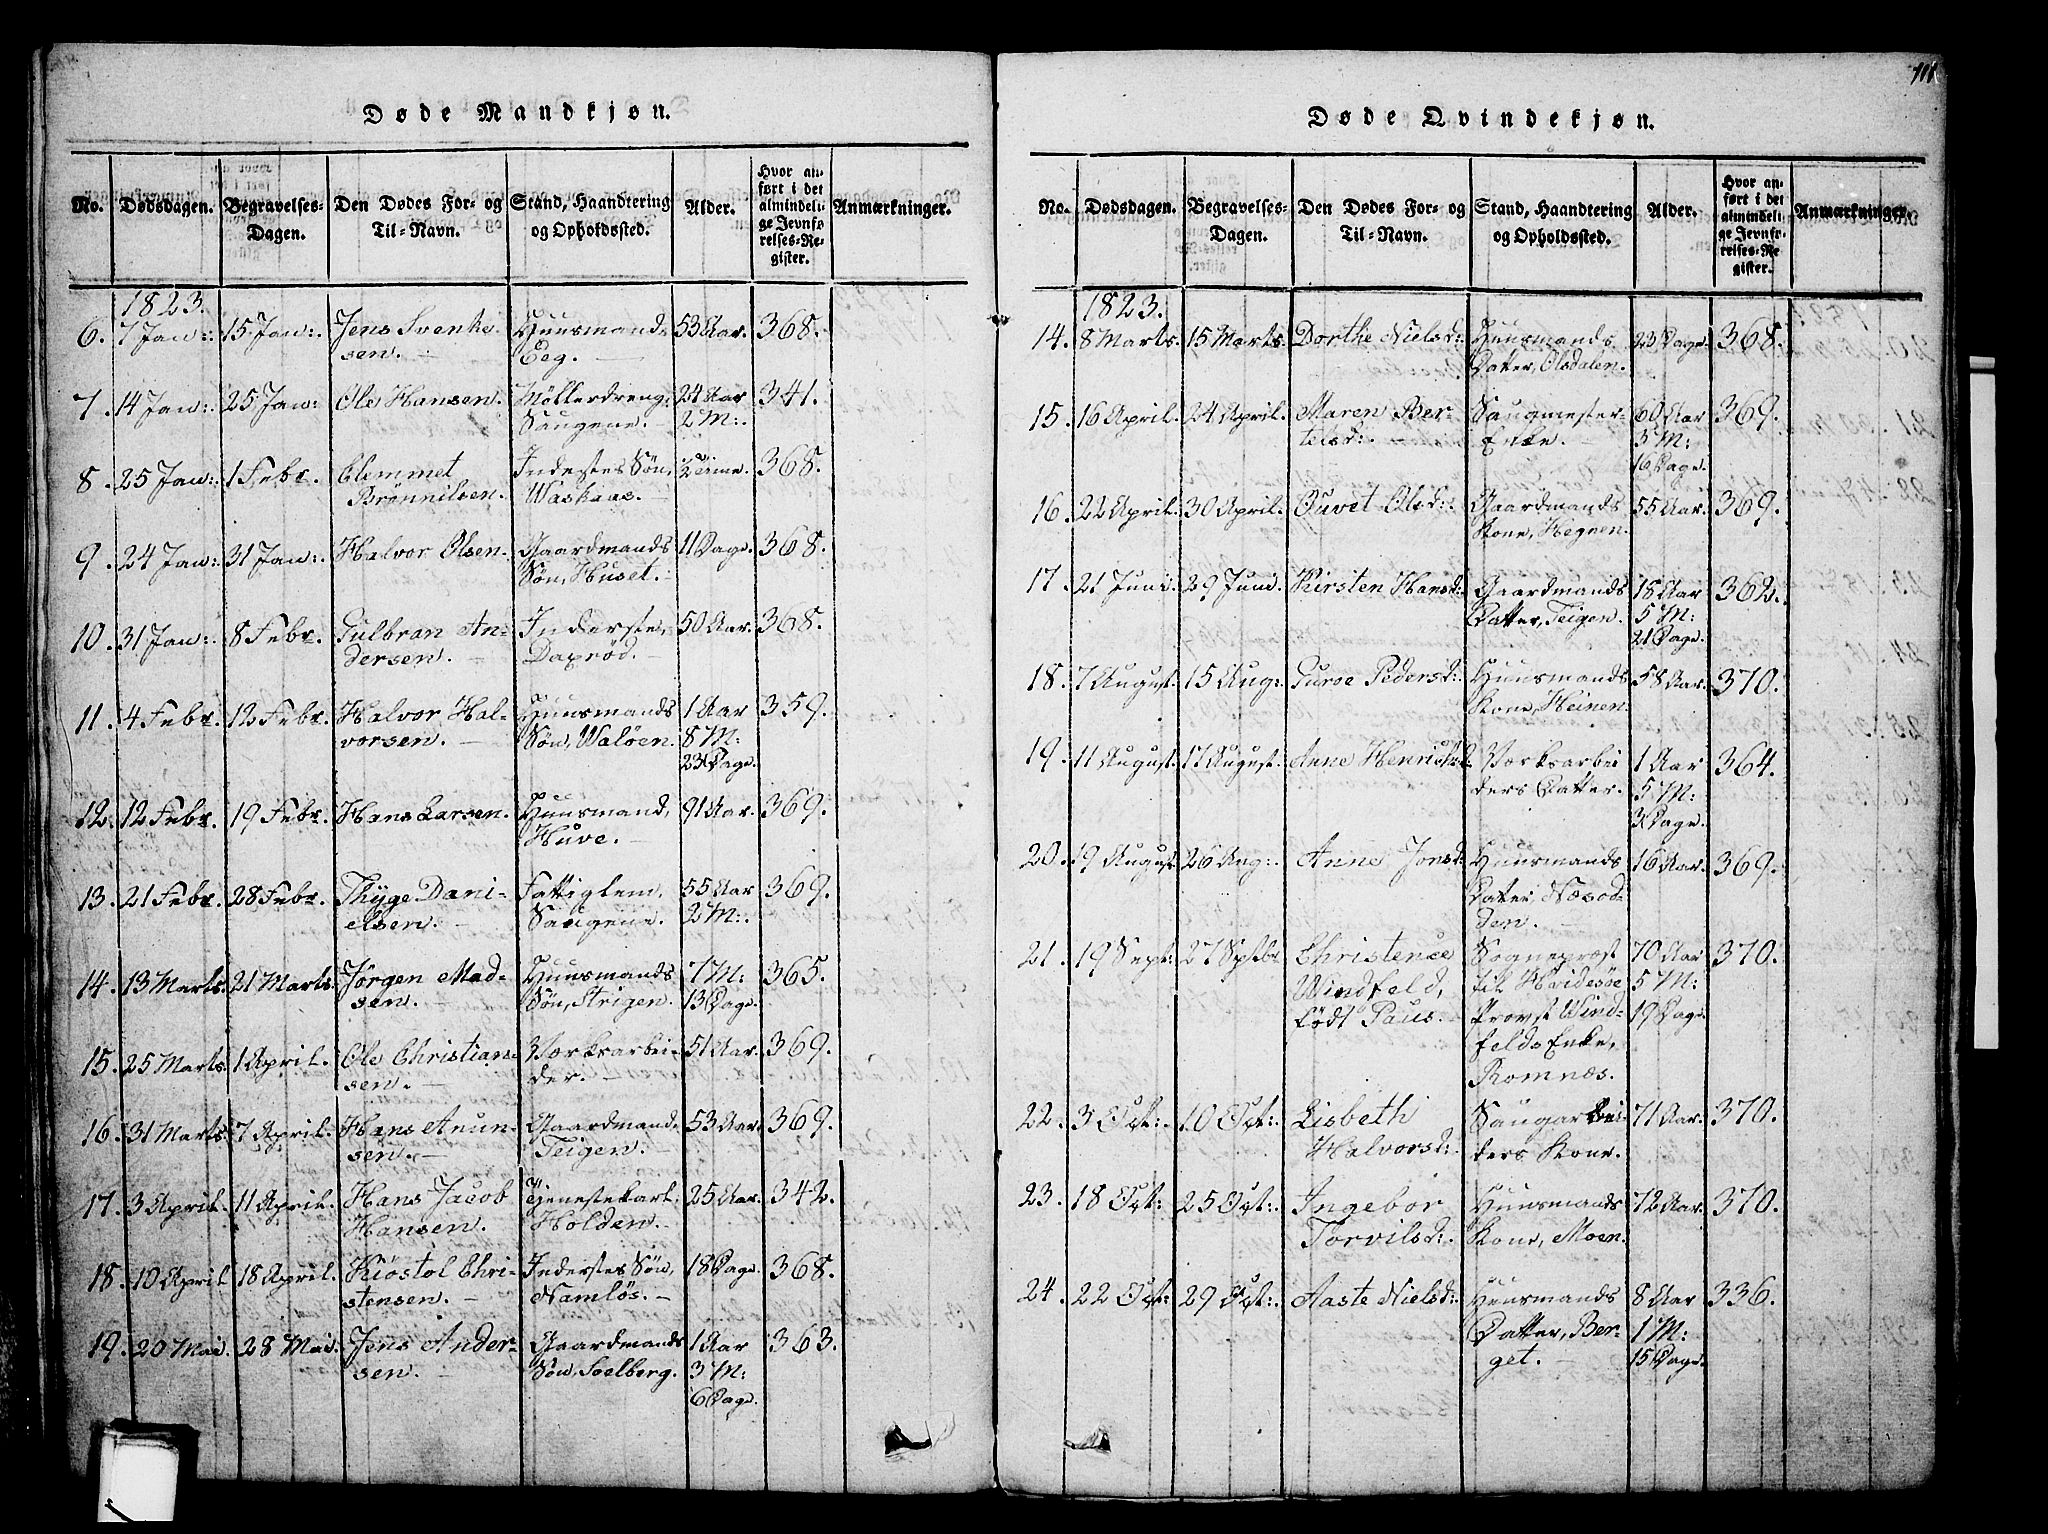 111
Døde Mandkjøn.
No. Dødsdagen. Begravelses-Dagen. Den Dødes For- og Til-Navn. Stand, Haandtering og Opholdssted. Alder. Hvor anført i det almindelige Jevnførelses-Register. Anmærkninger.
1823.
6. 7 Jan: 15 Jan: Jens Svenke- Huusmand, 53 Aar. 368.
sen. Eeg.
7. 14 Jan: 25 Jan: Ole Hansen. Møllerdreng, 24 Aar 341.
Saugene. 2 M:
8. 25 Jan: 1 Febr. Clemmet Inderstes Søn, 368.
Brønnilsen. Waskaas.
9. 24 Jan: 31 Jan: Halvor Olsen. Gaardmands 11 Dage. 368.
Søn, Huset.
10. 31 Jan: 8 Febr. Gulbran An- Inderste, 50 Aar. 368.
dersen. Daxrød.
11. 4 Febr. 12 Febr. Halvor Hal- Huusmands 1 Aar 359.
vorsen. Søn, Waløen. 8 M:
23 Dage.
12. 12 Febr. 19 Febr. Hans Larsen. Huusmand, 91 Aar. 369.
Huve.
13. 21 Febr. 28 Febr. Thyge Dani- Fattiglem, 55 Aar 369.
elsen. Saugene. 2 M:
14. 13 Marts. 21 Marts. Jørgen Mad- Huusmands 7 M: 365.
sen. Søn, Strigen. 13 Dage.
15. 25 Marts. 1 April. Ole Christian- Værksarbei- 51 Aar. 369.
sen. der.
16. 31 Marts. 7 April. Hans Anun- Gaardmand, 53 Aar. 369.
sen. Teigen.
17. 3 April. 11 April. Hans Jacob Tjenestekarl: 25 Aar. 342.
Hansen. Holden.
18. 10 April 18 April. Kiøstol Chri- Inderstes Søn, 18 Dage. 368.
stensen. Namløs.
19. 20 Mai. 28 Mai. Jens Ander- Gaardmands 1 Aar 363.
sen. Søn, Soelberg. 3 M:
6 Dage.
Døde Qvindekjøn.
No. Dødsdagen. Begravelses-Dagen. Den Dødes For- og Til-Navn. Stand, Haandtering og Opholdssted. Alder. Hvor anført i det almindelige Jevnførelses-Register. Anmærkninger.
1823.
14. 8 Marts. 15 Marts. Dorthe Nielsd: Huusmands 23 Dage. 368.
Datter, Olsdalen.
15. 16 April. 24 April. Maren Ber- Saugmester- 60 Aar 369.
telsd: Enke. 3 M:
16 Dage.
16. 22 April. 30 April. Ouvet Olsd: Gaardmands 55 Aar. 369.
Kone, Hegnen.
17. 21 Juni: 29 Juni. Kirsten Hansd: Gaardmands 18 Aar 362.
Datter, Teigen. 5 M:
21 Dage.
18. 7 August. 15 Aug: Guroe Pedersd: Huusmands 58 Aar. 370.
Kone, Heinen.
19. 11 August. 17 August. Anne Henrichsd: Værksarbei- 1 Aar 364.
ders Datter. 5 M:
3 Dage.
20. 19 August 26 Aug: Anne Jonsd: Huusmands 16 Aar. 369.
Datter, Næsod-
den.
21. 19 Sept: 27 Sptbr Christence Sognepræst 70 Aar 370.
Windfeld, til Hvidesøe 5 M:
født Paus. Provst Wind- 19 Dage
felds Enke,
Romnæs.
22. 3 Oct: 10 Oct: Lisbeth Saugarbei- 71 Aar. 370.
Halvorsd: ders Kone.
23. 18 Oct: 25 Oct: Ingebor Huusmands 72 Aar. 370.
Torvilsd: Kone, Moen.
24. 22 Oct: 29 Oct: Aaste Nielsd: Huusmands 8 Aar 336.
Datter, Ber- 1 M:
get. 15 Dage.